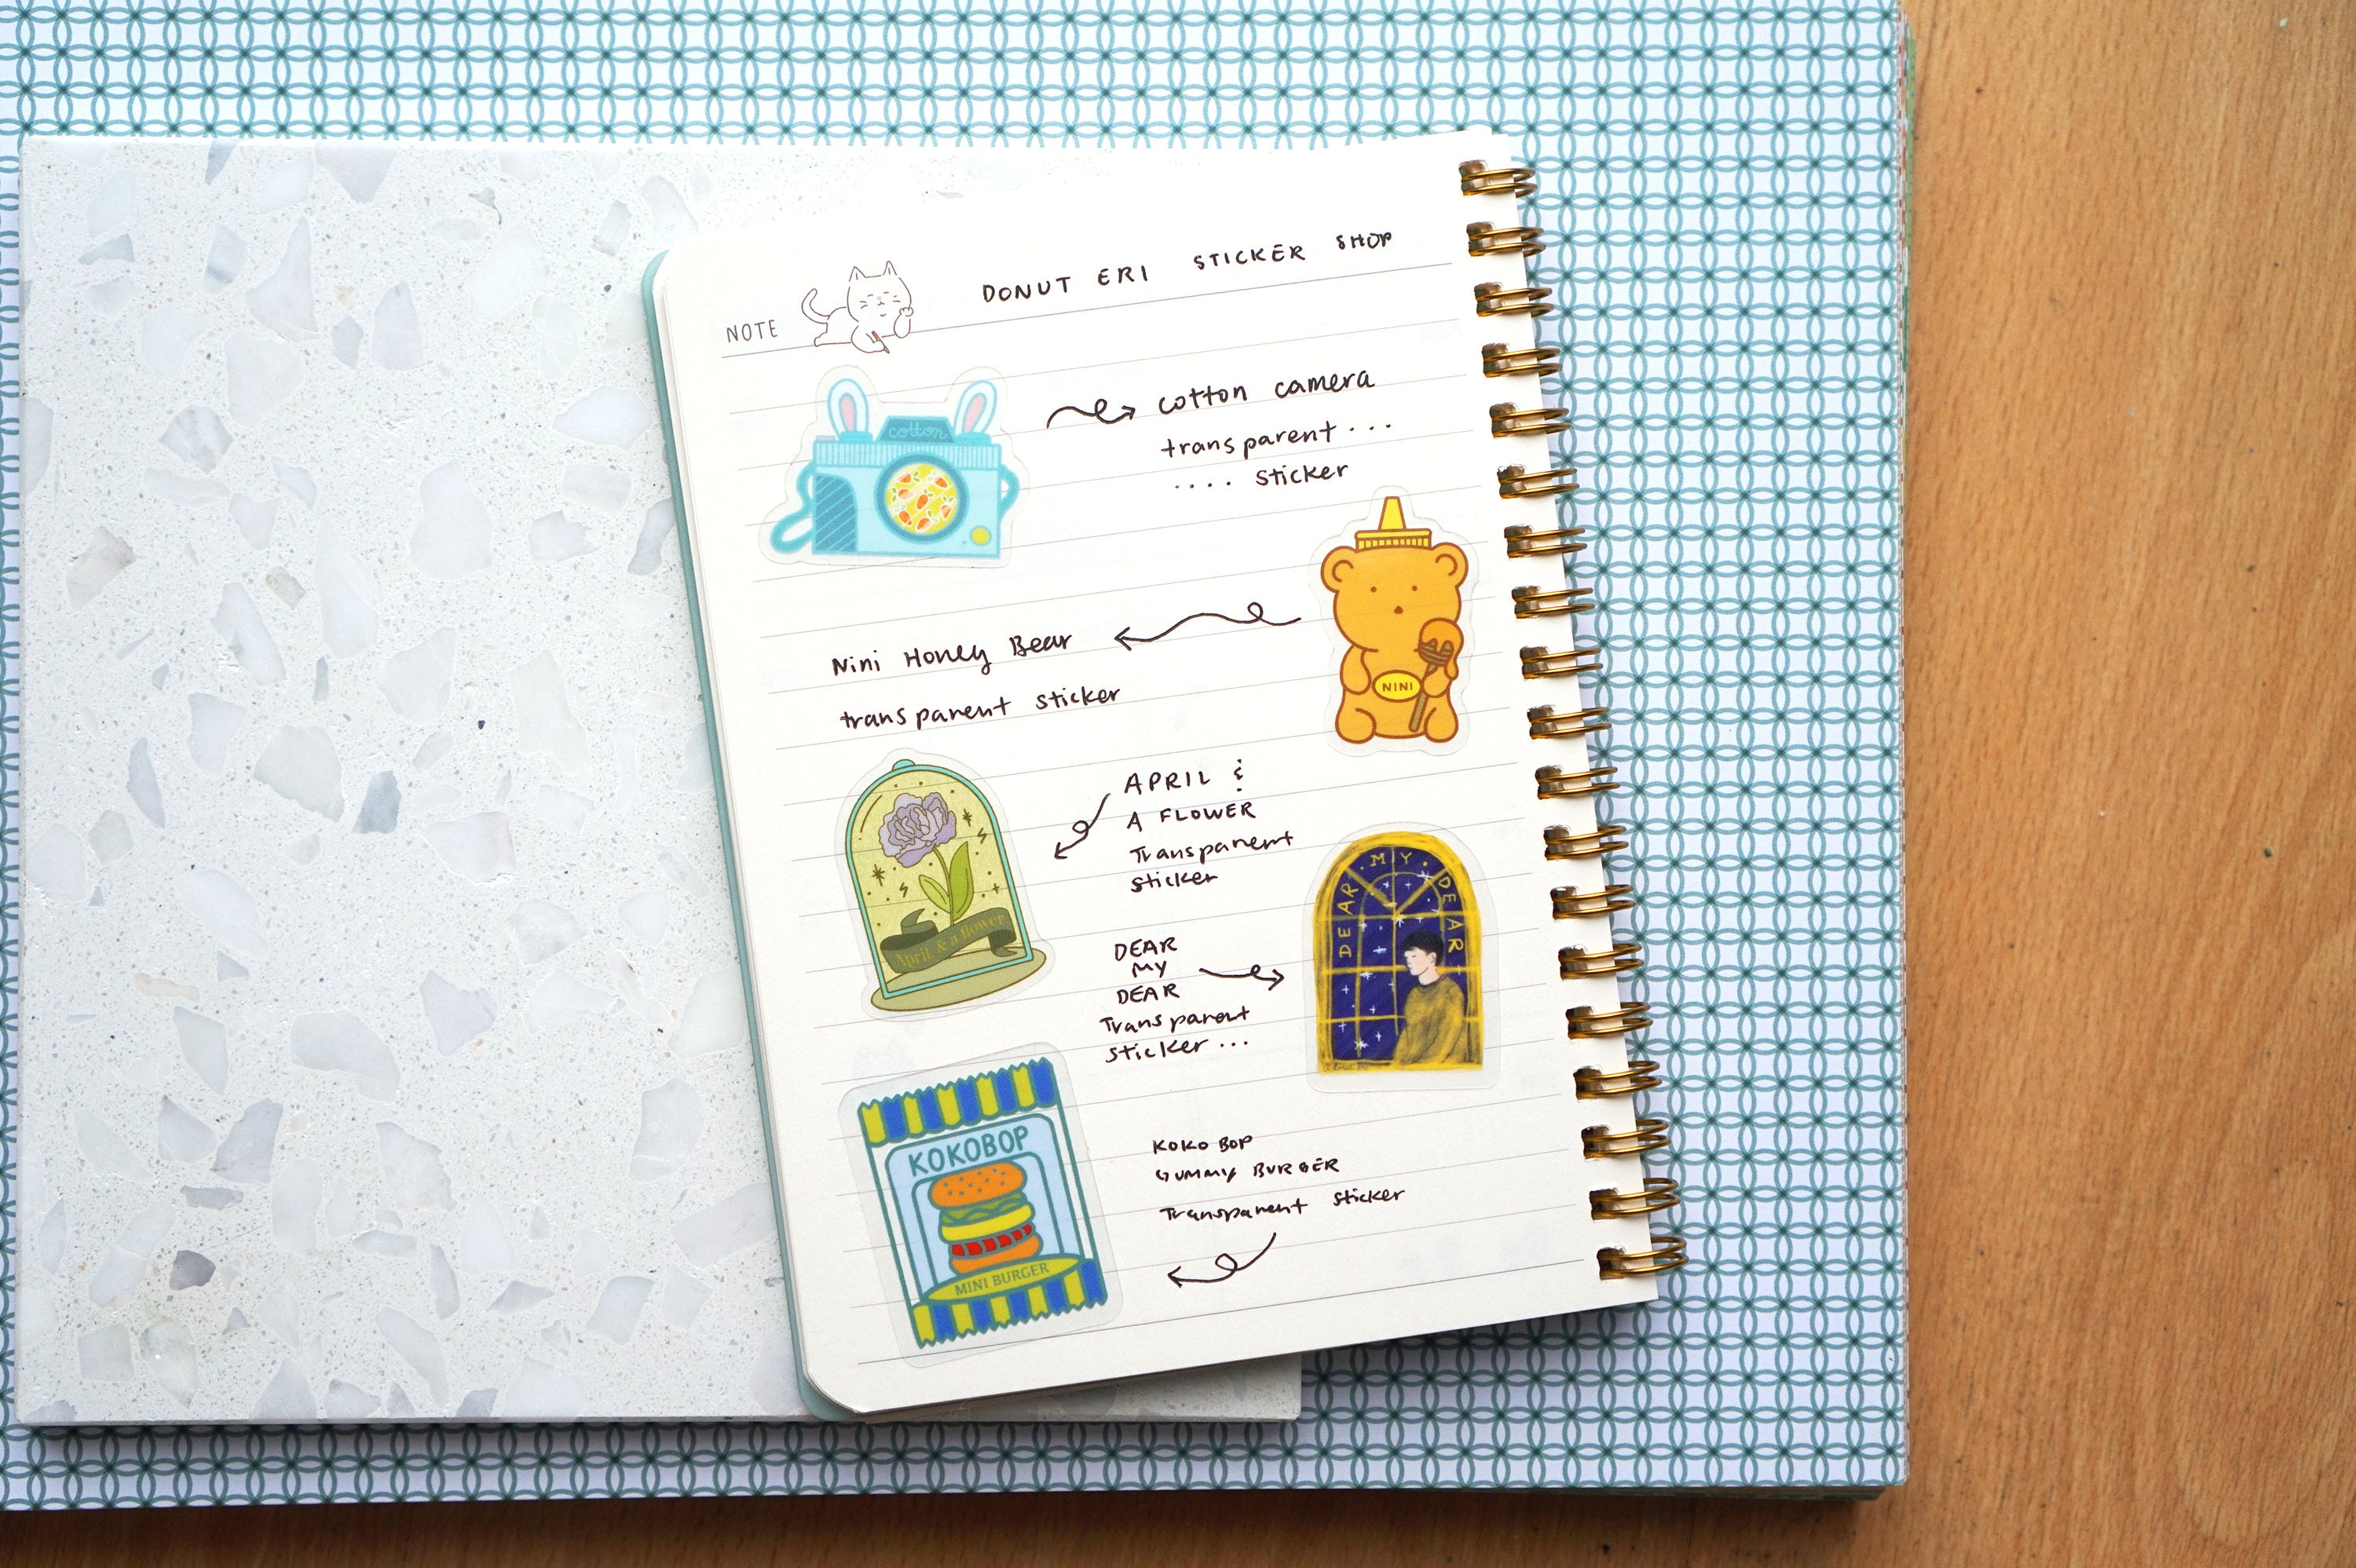 NOTE
DONUT ERI STICKER SHOP
cotton
cotton camera
transparent ...
.... sticker
Nini Honey Bear
transparent sticker
NINI
APRIL &
A FLOWER
Transparent
sticker
April & a flower
DEAR
MY
DEAR
Transparent
sticker ...
DEAR · MY · DEAR
KOKOBOP
MINI BURGER
KOKO BOP
GUMMY BURGER
Transparent sticker